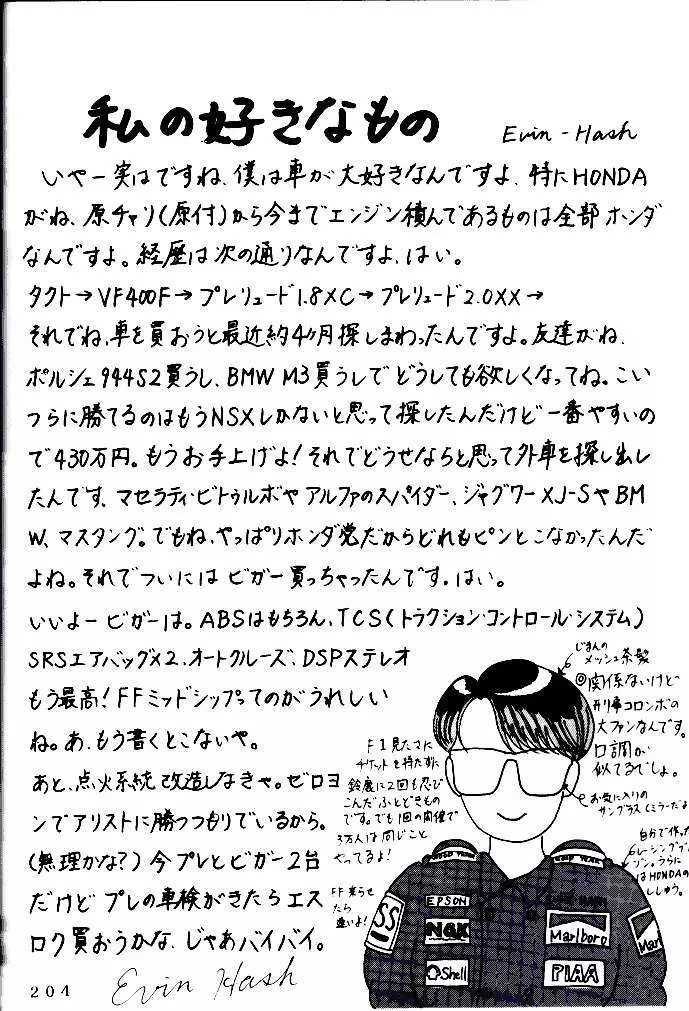 私の好きなもの Evin-Hash
いやー実はですね、僕は車が大好きなんですよ、特にHONDA
がね、原チャリ(原付)から今までエンジン積んであるものは全部ホンダ
なんですよ。経歴は次の通りなんですよ、はい。
タクト→VF400F→プレリュード1.8XC→プレリュード2.0XX→
それでね、車を買おうと最近約4ヶ月探しまわったんですよ。友達がね、
ポルシェ944S2買うし、BMW M3買うしでどうしても欲しくなってね。こい
つらに勝てるのはもうNSXしかないと思って探したんだけど一番やすいの
で430万円。もうお手上げよ!それでどうせならと思って外車を探し出し
たんです、マセラティ・ビトゥルボやアルファのスパイダー、ジャグワーXJ-SやBM
W、マスタング。でもね、やっぱりホンダ党だからどれもピンとこなかったんだ
よね。それでついにはビガー買っちゃったんです。はい。
いいよービガーは。ABSはもちろん、TCS(トラクション・コントロール・システム)
SRSエアバッグ×2、オートクルーズ、DSPステレオ
もう最高!FFミッドシップってのがうれしい
ね。あ、もう書くとこないや。
あと、点火系統改造しなきゃ。ゼロヨ
ンでアリストに勝つつもりでいるから。
(無理かな?)今プレとビガー2台
だけど プレの車検がきたらエス
ロク買おうかな、じゃあバイバイ。
Evin Hash
204
じまんの
メッシュ茶髪
◎関係ないけど
刑事コロンボの
大ファンなんです。
口調が
似てるでしょ。
お気に入りの
サングラス(ミラーだよ
F1見たさに
チケットを持たずに
鈴鹿に2回も忍び
こんだふとどきもの
です。でも1回の開催で
3万人は同じこと
やってるよ!
FF来らせ
たら
速いよ!
自分で作った
レーシングブル
ゾン。うらに
はHONDAの
ししゅう。
SS
EPSON
NGK
Shell
Marlboro
PIAA
Ma